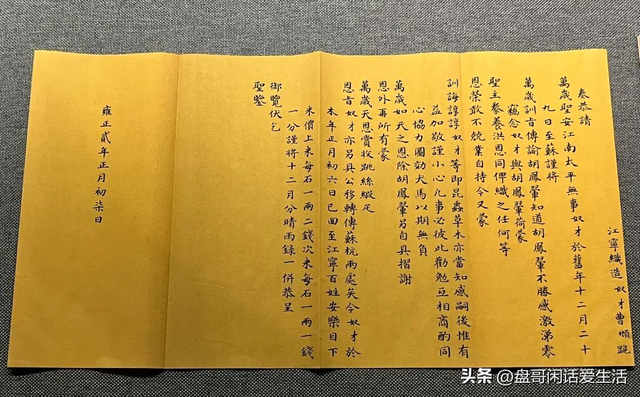 江寧織造奴才曹頫跪
奏恭請
萬歲聖安江南太平無事奴才於舊年十二月二十
九日至蘇謹將
萬歲訓旨傳諭胡鳳翬知道胡鳳翬不勝感激涕零
竊念奴才與胡鳳翬荷蒙
聖主豢養洪恩同俾織之任何等
恩榮敢不兢業自持今又蒙
訓誨諄諄奴才等即昆蟲草木亦當知感嗣後惟有
益加敬謹小心凡事必彼此勸勉互相商酌同
心協力圖効犬馬以期無負
萬歲如天之恩除胡鳳翬另自具摺謝
恩外再所有蒙
萬歲天恩賞收跳絲緞疋
恩旨奴才亦另具公移轉傳蘇杭兩處矣今奴才於
本年正月初六日已回至江寧百姓安樂目下
米價上米每石一兩二錢次米每石一兩一錢
一分謹將十二月分晴雨錄一併恭呈
御覽伏乞
聖鑒
雍正貳年正月初柒日
头条 @盘哥闲话爱生活